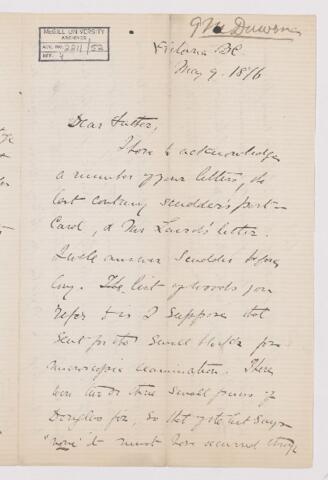 McGILL UNIVERSITY
ARCHIVES
ACC. NO. 2211/52
REF. 4
G M Dawson
Victoria BC
May 9. 1876
Dear Father,
I have to acknowledge
a number of your letters, the
last containing Scudder's post-
card, & Mrs letter.
I will answer Scudder before
long. The list of woods you
refer to is I suppose that
sent for the small blocks for
microscopic examination. There
were two or three small pieces of
Douglas fir, so that if the list says
"none" it must have occurred through